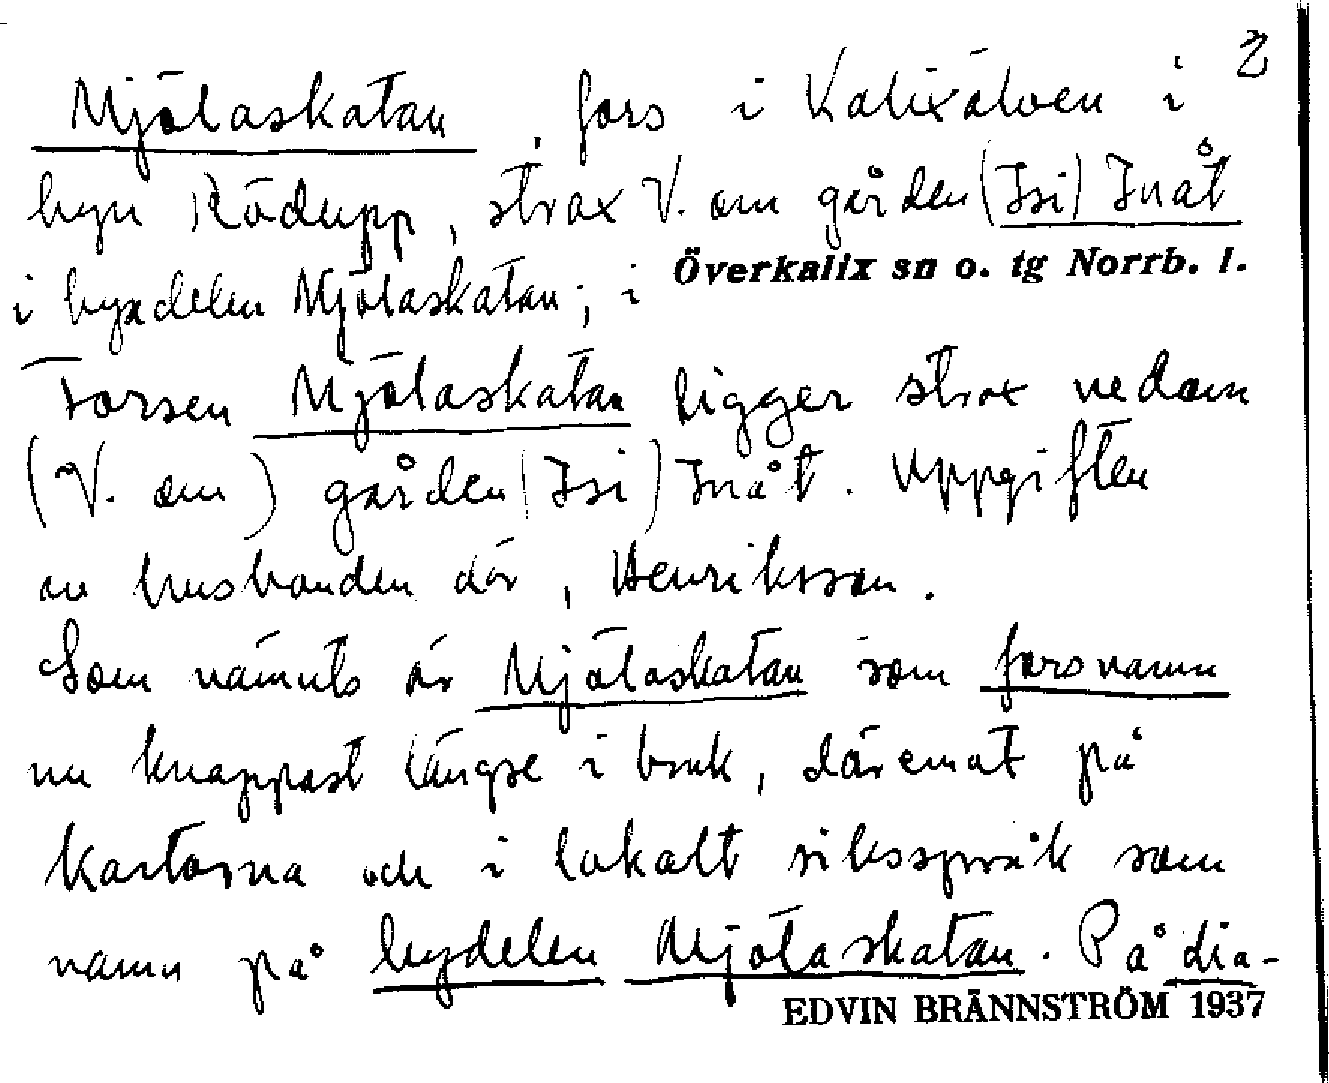 2
Mjölaskatan, fors i Kalixälven i
byn Rödupp, strax V. om gården (Isi) Inåt
Överkalix sn o. tg Norrb. l.
i byadelen Mjölaskatan; i
Forsen Mjölaskatan ligger strax nedom
(V. om) gården (Isi) Inåt. Uppgiften
av husbonden där, Henriksson.
Som nämnts är Mjölaskatan som forsnamn
nu knappast längse i bruk, däremot på
kartorna och i lokalt riksspråk som
namn på bydelen Mjölaskatan. På dia-
EDVIN BRÄNNSTRÖM 1937